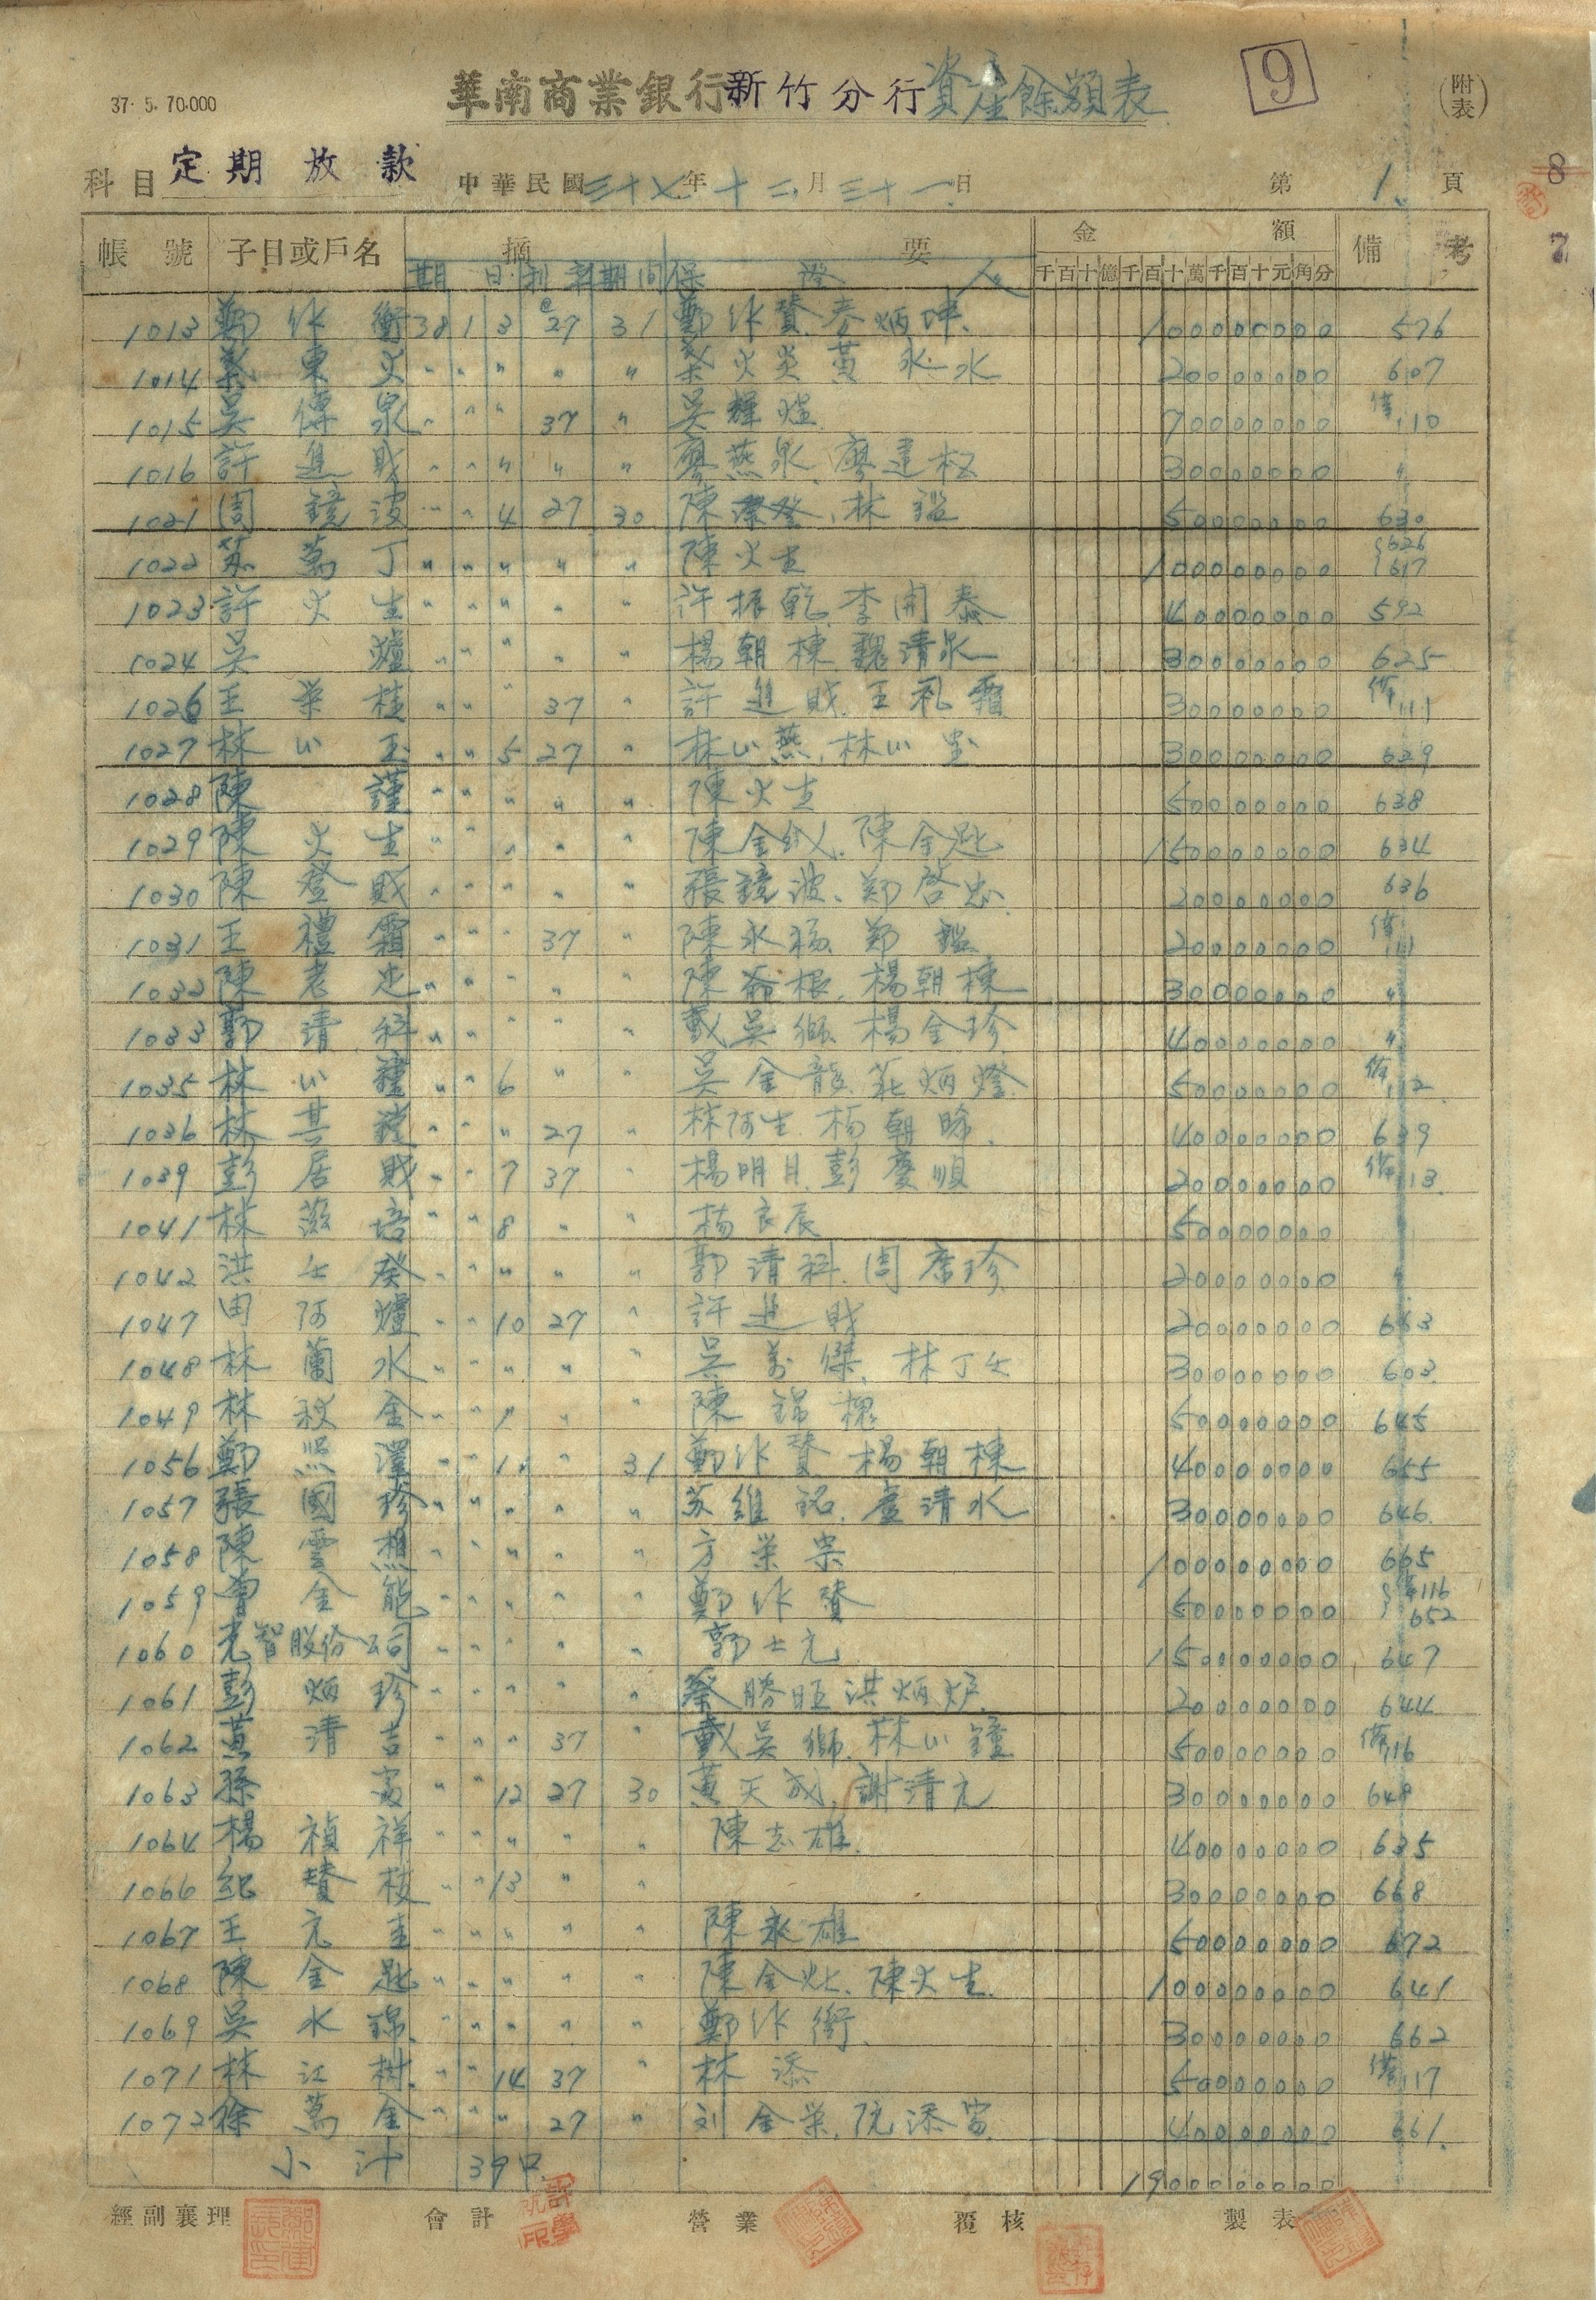 37. 5. 70.000
華南商業銀行新竹分行資產餘額表
9
(附表)
科目 定期放款 中華民國三十七年十二月三十一日 第 1 頁
8
7
帳號 子目或戶名 摘要 金額 備考
期日 利率 期間 保證人 千百十億千百十萬千百十元角分
1013 鄭作衡 38 1 3 @27 31 鄭作贊 100000000 576
1014 葉東火 〃 〃 〃 〃 〃 葉火炎 黃永水 20000000 607
1015 吳傳泉 〃 〃 〃 37 〃 吳輝煌 70000000 備110
1016 許進財 〃 〃 〃 〃 〃 廖燕泉、廖建松 30000000 〃
1021 周鏡波 〃 〃 4 27 30 陳 登、林鎰 50000000 630
1022 蘇萬丁 〃 〃 〃 〃 〃 陳火生 100000000 626 617
1023 許火生 〃 〃 〃 〃 〃 許振乾、李開泰 40000000 592
1024 吳爐 〃 〃 〃 〃 〃 楊朝棟 魏清泉 30000000 625
1026 王榮桂 〃 〃 〃 37 〃 許進財、王礼霜 30000000 備111
1027 林山玉 〃 〃 5 27 〃 林山燕、林山 30000000 629
1028 陳謹 〃 〃 〃 〃 〃 陳火生 50000000 638
1029 陳火生 〃 〃 〃 〃 陳金 、陳金匙 150000000 634
1030 陳登財 〃 〃 〃 〃 〃 張鏡波、鄭啓忠 20000000 636
1031 王禮霜 〃 〃 〃 37 〃 陳永福、鄭鎰 20000000 備111
1032 陳老忠 〃 〃 〃 〃 〃 陳 根、楊朝棟 30000000 〃
1033 郭清科 〃 〃 〃 〃 〃 戴吳獅、楊金珍 40000000 〃
1035 林山鐘 〃 〃 6 〃 〃 吳金龍、莊炳燈 50000000 備112
1036 林其 〃 〃 〃 27 〃 林阿生、楊朝 40000000 639
1039 彭居財 〃 〃 7 37 〃 楊明月、彭慶順 20000000 備113
1041 林 培 〃 〃 8 〃 〃 楊良辰 50000000 〃
1042 洪士癸 〃 〃 〃 〃 〃 郭清科、周席珍 20000000 〃
1047 田阿爐 〃 〃 10 27 〃 許進財 20000000 653
1048 林蘭水 〃 〃 〃 〃 〃 吳萬傑、林丁士 30000000 603
1049 林秋金 〃 〃 〃 〃 〃 陳錦 50000000 645
1056 鄭照澤 〃 〃 11 〃 31 鄭作贊 楊朝棟 40000000 655
1057 張國珍 〃 〃 〃 〃 〃 蘇維銘、盧清水 30000000 646
1058 陳雲 〃 〃 〃 〃 〃 方榮宗 100000000 665
1059 曾金能 〃 〃 〃 〃 〃 鄭作贊 50000000 備116 652
1060 光智股份公司 〃 〃 〃 〃 〃 郭士元 150000000 647
1061 彭炳珍 〃 〃 〃 〃 〃 蔡勝旺 洪炳炉 20000000 644
1062 黃清吉 〃 〃 〃 37 〃 戴吳獅、林山鐘 50000000 備116
1063 孫 〃 〃 12 27 30 黃天成、謝清元 30000000 648
1064 楊禎祥 〃 〃 〃 〃 〃 陳志雄 40000000 635
1066 紀贊枝 〃 〃 13 〃 〃 30000000 668
1067 王元圭 〃 〃 〃 〃 〃 陳永雄 50000000 672
1068 陳金匙 〃 〃 〃 〃 〃 陳金灶、陳火生 100000000 641
1069 吳水錦 〃 〃 〃 〃 〃 鄭作衡 30000000 662
1071 林江樹 〃 〃 14 37 〃 林添 50000000 備117
1072 徐萬金 〃 〃 〃 27 〃 刘金榮、阮添富 40000000 661
小計 39口 1900000000
經副襄理 會計 營業 覆核 製表